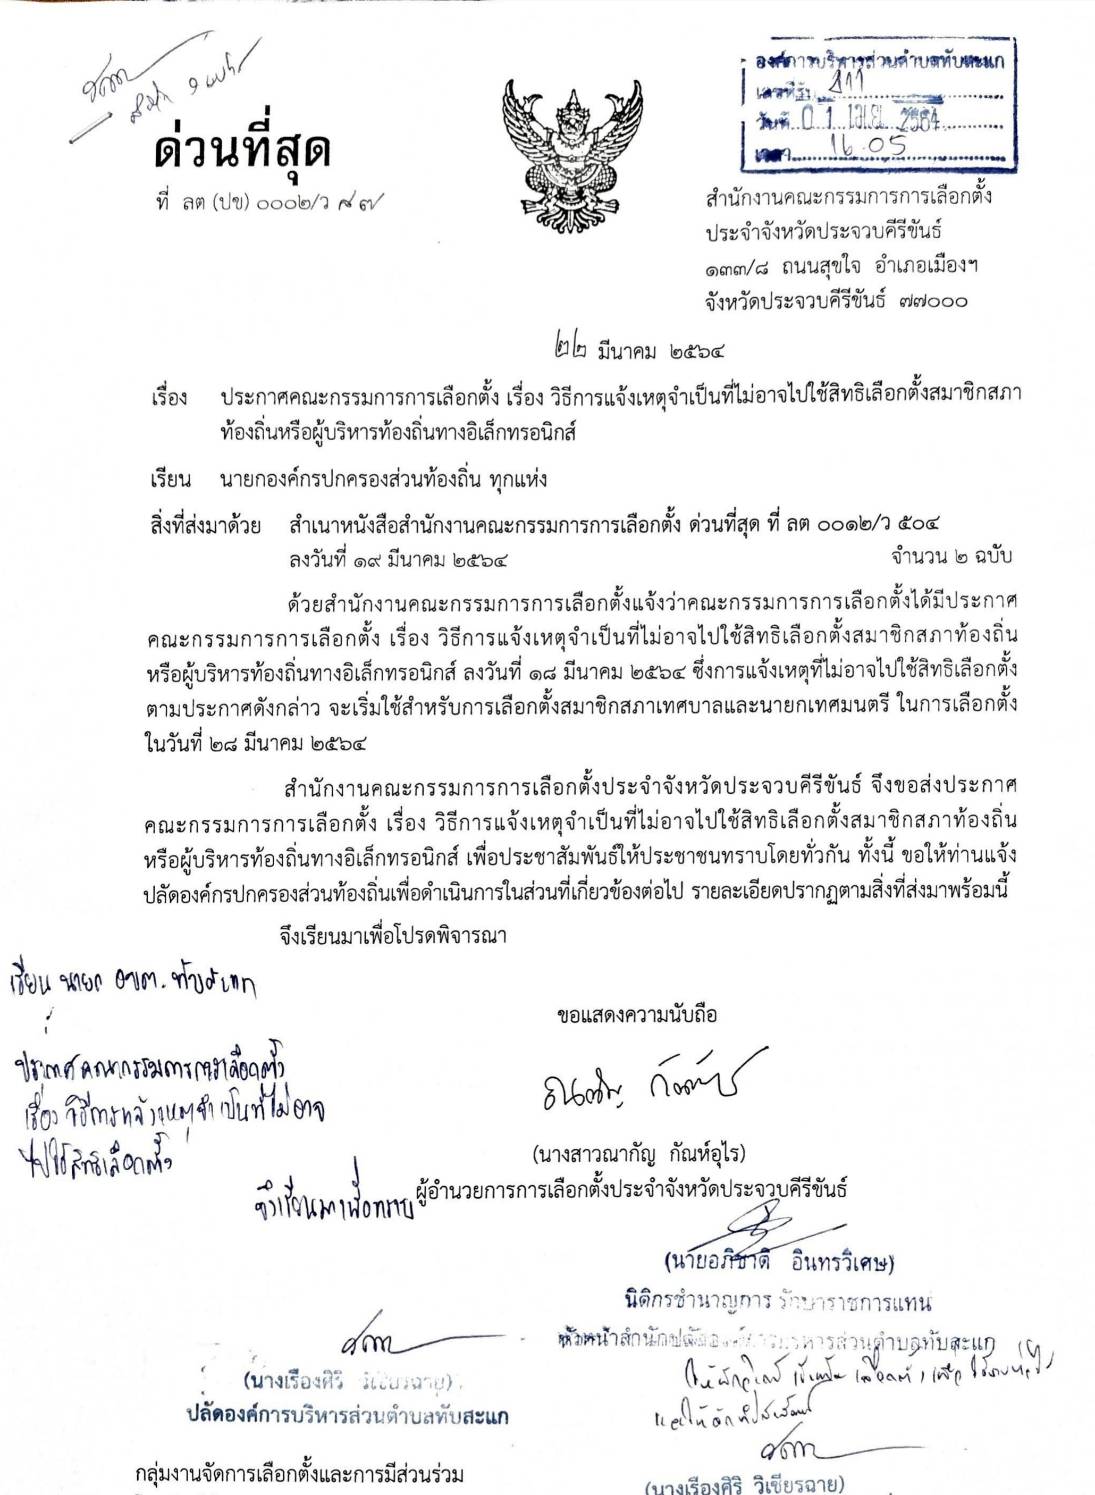 องค์การบริหารส่วนตำบลทับสะแก
เลขที่รับ 811
วันที่ 01 เม.ย. 2564
เวลา 16.05
ด่วนที่สุด
ที่ ลต (ปข) ๐๐๐๒/ว ๙๗
สำนักงานคณะกรรมการการเลือกตั้ง
ประจำจังหวัดประจวบคีรีขันธ์
๑๓๓/๘ ถนนสุขใจ อำเภอเมืองฯ
จังหวัดประจวบคีรีขันธ์ ๗๗๐๐๐
๒๒ มีนาคม ๒๕๖๔
เรื่อง ประกาศคณะกรรมการการเลือกตั้ง เรื่อง วิธีการแจ้งเหตุจำเป็นที่ไม่อาจไปใช้สิทธิเลือกตั้งสมาชิกสภา
ท้องถิ่นหรือผู้บริหารท้องถิ่นทางอิเล็กทรอนิกส์
เรียน นายกองค์กรปกครองส่วนท้องถิ่น ทุกแห่ง
สิ่งที่ส่งมาด้วย สำเนาหนังสือสำนักงานคณะกรรมการการเลือกตั้ง ด่วนที่สุด ที่ ลต ๐๐๑๒/ว ๕๐๔
ลงวันที่ ๑๙ มีนาคม ๒๕๖๔ จำนวน ๒ ฉบับ
ด้วยสำนักงานคณะกรรมการการเลือกตั้งแจ้งว่าคณะกรรมการการเลือกตั้งได้มีประกาศ
คณะกรรมการการเลือกตั้ง เรื่อง วิธีการแจ้งเหตุจำเป็นที่ไม่อาจไปใช้สิทธิเลือกตั้งสมาชิกสภาท้องถิ่น
หรือผู้บริหารท้องถิ่นทางอิเล็กทรอนิกส์ ลงวันที่ ๑๘ มีนาคม ๒๕๖๔ ซึ่งการแจ้งเหตุที่ไม่อาจไปใช้สิทธิเลือกตั้ง
ตามประกาศดังกล่าว จะเริ่มใช้สำหรับการเลือกตั้งสมาชิกสภาเทศบาลและนายกเทศมนตรี ในการเลือกตั้ง
ในวันที่ ๒๘ มีนาคม ๒๕๖๔
สำนักงานคณะกรรมการการเลือกตั้งประจำจังหวัดประจวบคีรีขันธ์ จึงขอส่งประกาศ
คณะกรรมการการเลือกตั้ง เรื่อง วิธีการแจ้งเหตุจำเป็นที่ไม่อาจไปใช้สิทธิเลือกตั้งสมาชิกสภาท้องถิ่น
หรือผู้บริหารท้องถิ่นทางอิเล็กทรอนิกส์ เพื่อประชาสัมพันธ์ให้ประชาชนทราบโดยทั่วกัน ทั้งนี้ ขอให้ท่านแจ้ง
ปลัดองค์กรปกครองส่วนท้องถิ่นเพื่อดำเนินการในส่วนที่เกี่ยวข้องต่อไป รายละเอียดปรากฏตามสิ่งที่ส่งมาพร้อมนี้
จึงเรียนมาเพื่อโปรดพิจารณา
เรียน นายก อบต. ทับสะแก
ขอแสดงความนับถือ
ประกาศคณะกรรมการการเลือกตั้ง
เรื่อง วิธีการแจ้งเหตุจำเป็นที่ไม่อาจ
ไปใช้สิทธิเลือกตั้ง
จึงเรียนมาเพื่อทราบ
(นางสาวณากัญ กัณห์อุไร)
ผู้อำนวยการการเลือกตั้งประจำจังหวัดประจวบคีรีขันธ์
(นายอภิชาติ อินทรวิเศษ)
นิติกรชำนาญการ รักษาราชการแทน
หัวหน้าสำนักปลัดองค์การบริหารส่วนตำบลทับสะแก
(นางเรืองศิริ วิเชียรฉาย)
ปลัดองค์การบริหารส่วนตำบลทับสะแก
กลุ่มงานจัดการเลือกตั้งและการมีส่วนร่วม
(นางเรืองศิริ วิเชียรฉาย)